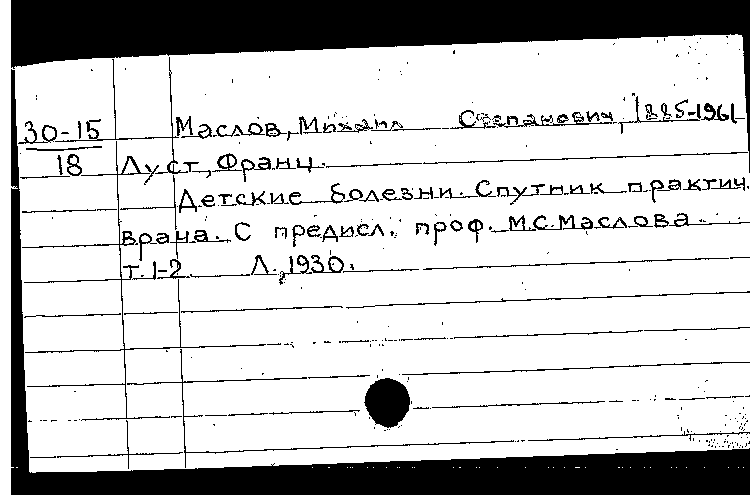 30-15 Маслов, Михаил Степанович, 1885-1961
18 Луст, Франц.
Детские болезни. Спутник практич.
врача. С предисл. проф. М.С. Маслова.
т. 1-2. Л., 1930.